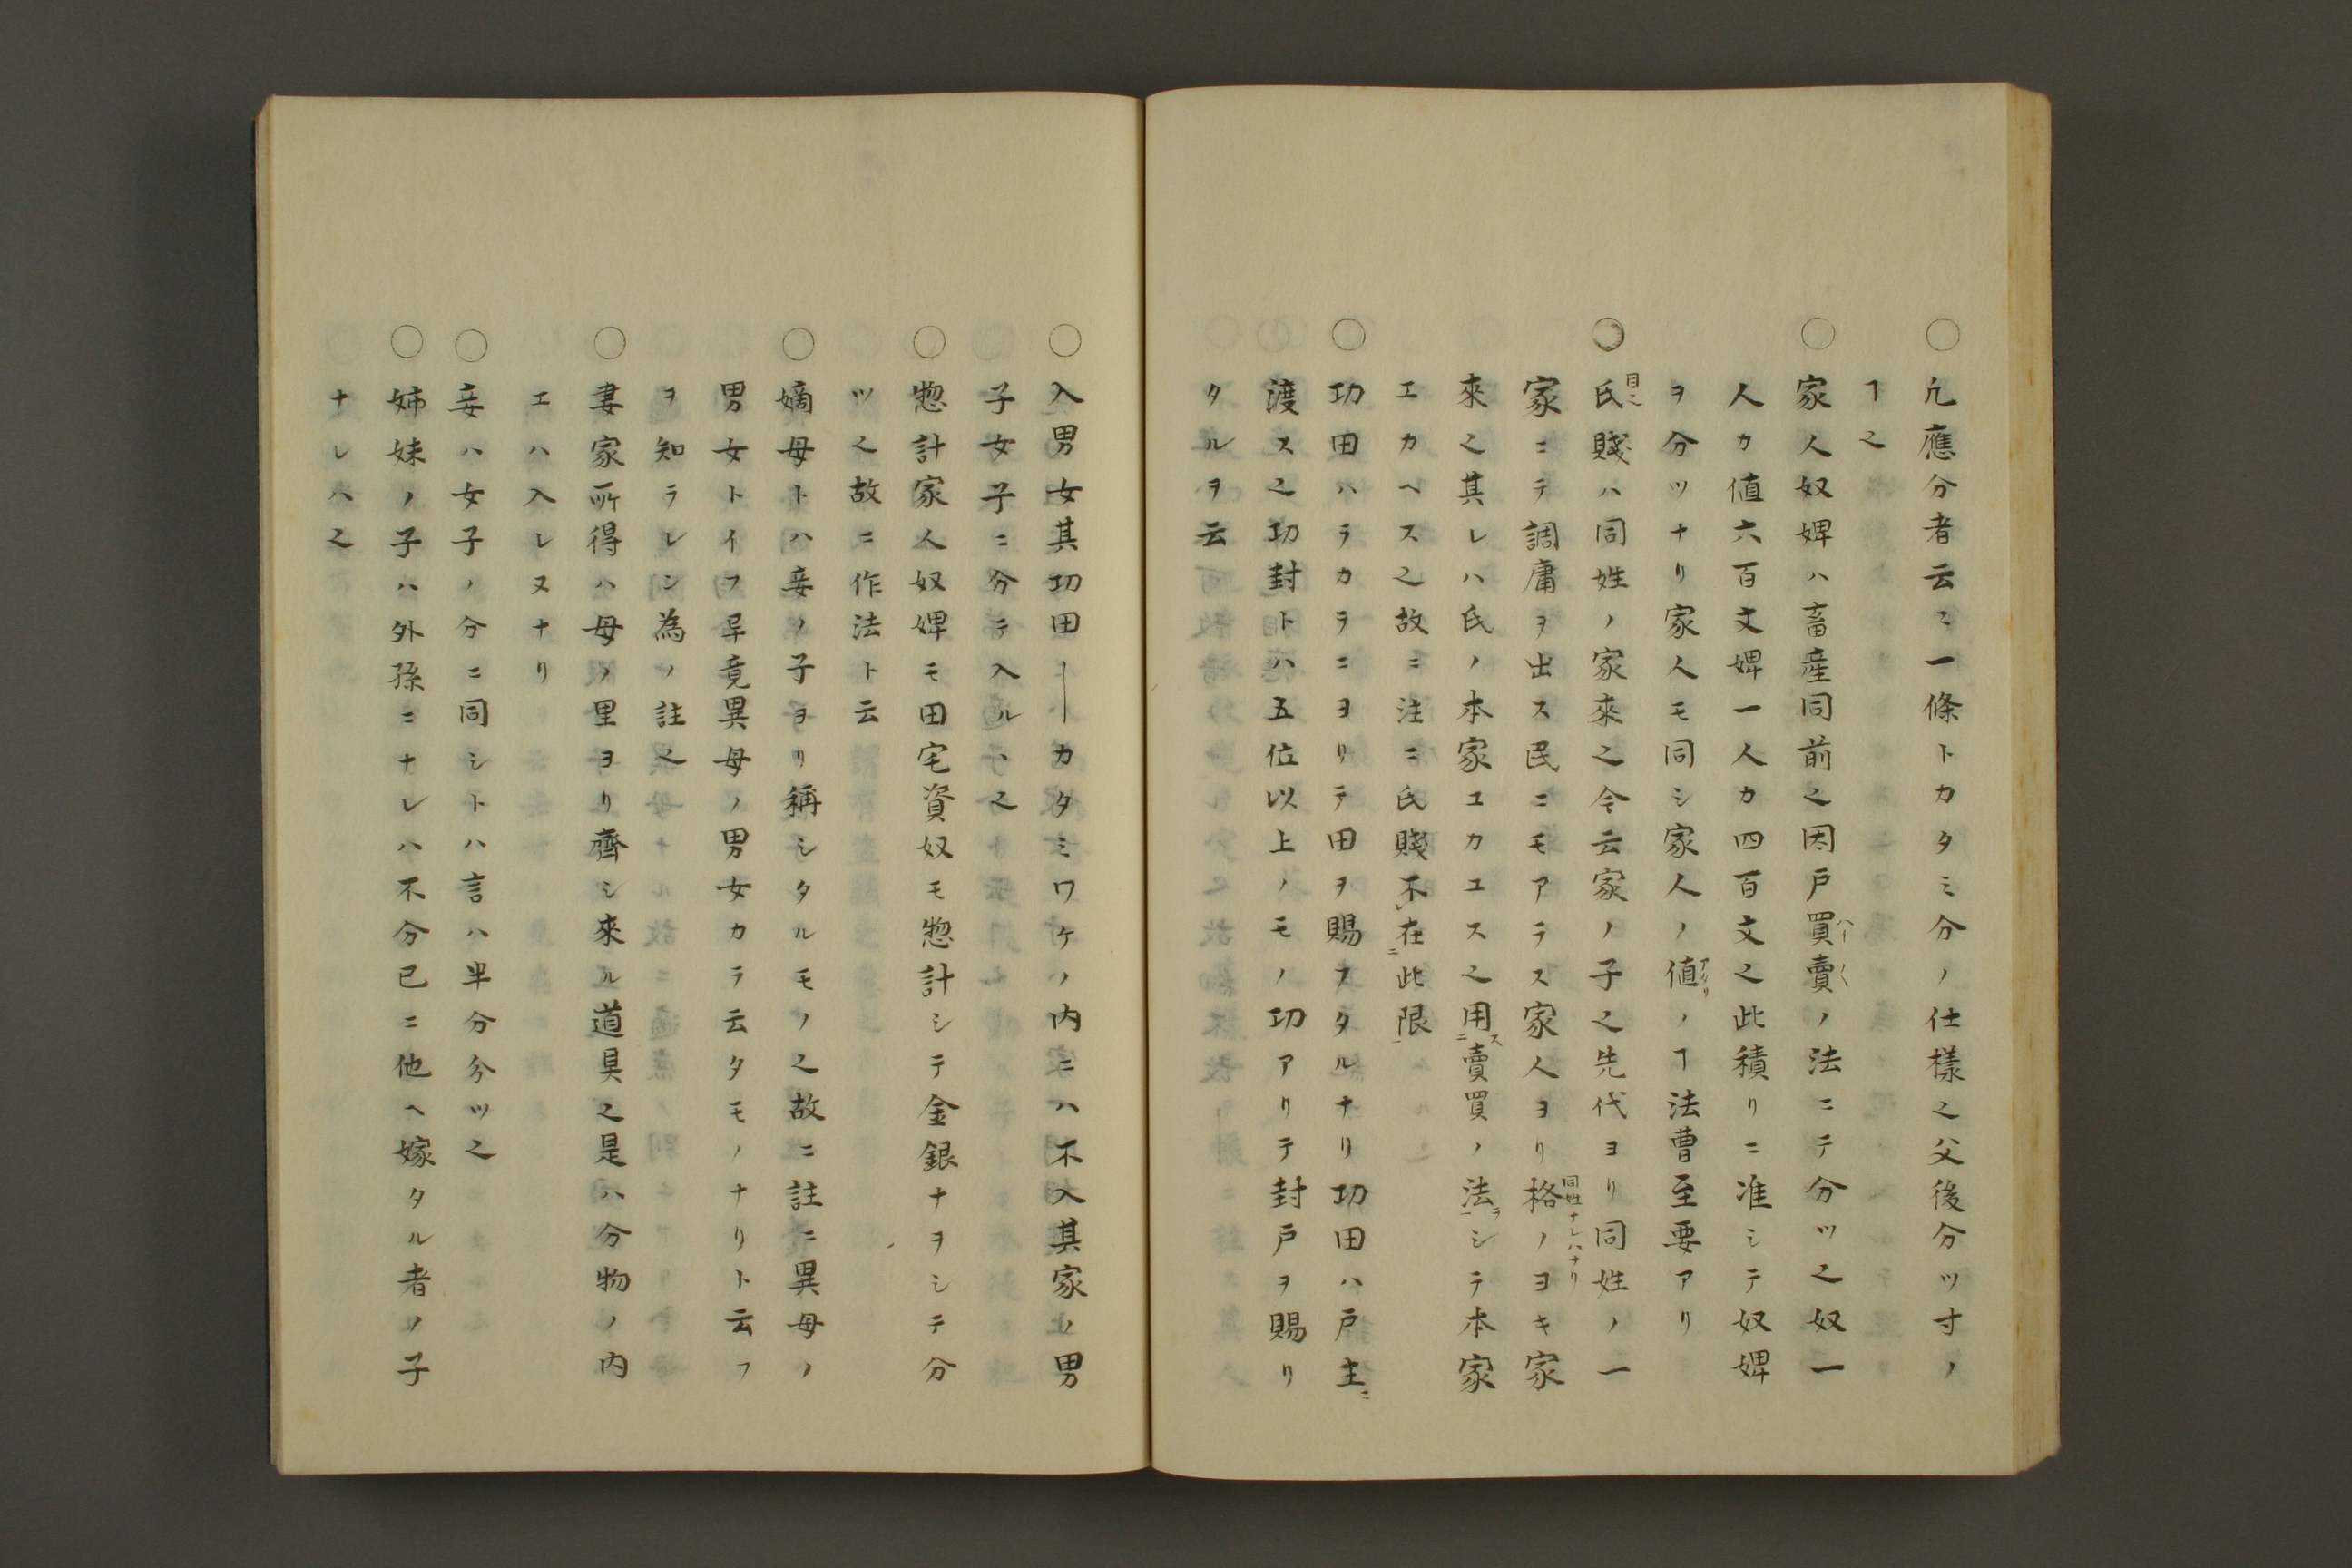 ○凢應分者云〻一條トカタミ分ノ仕樣之父後分ツ寸ノ
ヿ之
○家人奴婢ハ畜産同前之因戸買賣ノ法ニテ分ツ之奴一
人カ値六百文婢一人カ四百文之此積リニ准シテ奴婢
ヲ分ツナリ家人モ同シ家人ノ値ノヿ法曹至要アリ
○氏賤ハ同姓ノ家來之今云家ノ子之先代ヨリ同姓ノ一
家ニテ調庸ヲ出ス民ニモアラス家人ヨリ格ノヨキ家
同姓ナレハナリ
來之其レハ氏ノ本家エカエス之用ス賣買ノ法ヲシテ本家
エカヘス之故ニ注ニ氏賤不レ在ニ此限一
○功田ハラカラニヨリテ田ヲ賜フタルナリ功田ハ戸主ニ
渡ス之功封トハ五位以上ノモノ功アリテ封戸ヲ賜リ
タルヲ云
○入男女其功田――カタミワケノ内ニハ不入其家ノ男
子女子ニ分テ入ルハ之
○惣計家人奴婢モ田宅資奴モ惣計シテ金銀ナヲシテ分
ツ之故ニ作法ト云
○嫡母トハ妾ノ子ヨリ稱シタルモノ之故ニ註ニ異母ノ
男女トイフ早竟異母ノ男女カラ云タモノナリト云フ
ヲ知ラレン為ノ註之
○妻家所得ハ母ノ里ヨリ齊シ來ル道具之是ハ分物ノ内
エハ入レヌナリ
○妾ハ女子ノ分ニ同シトハ言ハ半分分ツ之
○姉妹ノ子ハ外孫ニナレハ不分已ニ他ヘ嫁タル者ノ子
ナレハ之